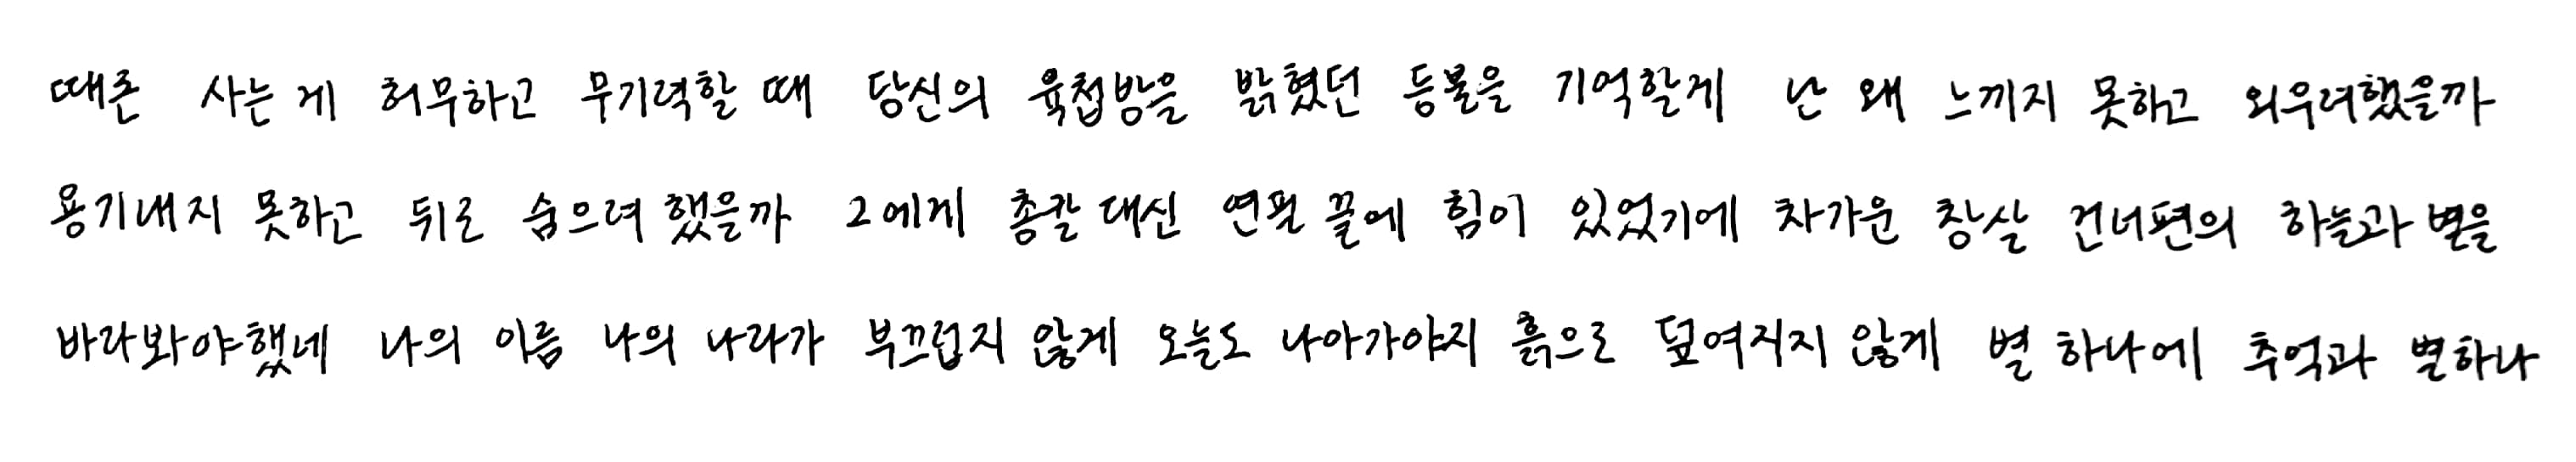 때론 사는 게 허무하고 무기력할 때 당신의 육첩방을 밝혔던 등불을 기억할게 난 왜 느끼지 못하고 외우려했을까
용기내지 못하고 뒤로 숨으려 했을까 그에게 총칼 대신 연필 끝에 힘이 있었기에 차가운 창살 건너편의 하늘과 별을
바라봐야했네 나의 이름 나의 나라가 부끄럽지 않게 오늘도 나아가야지 흙으로 덮여지지 않게 별 하나에 추억과 별하나